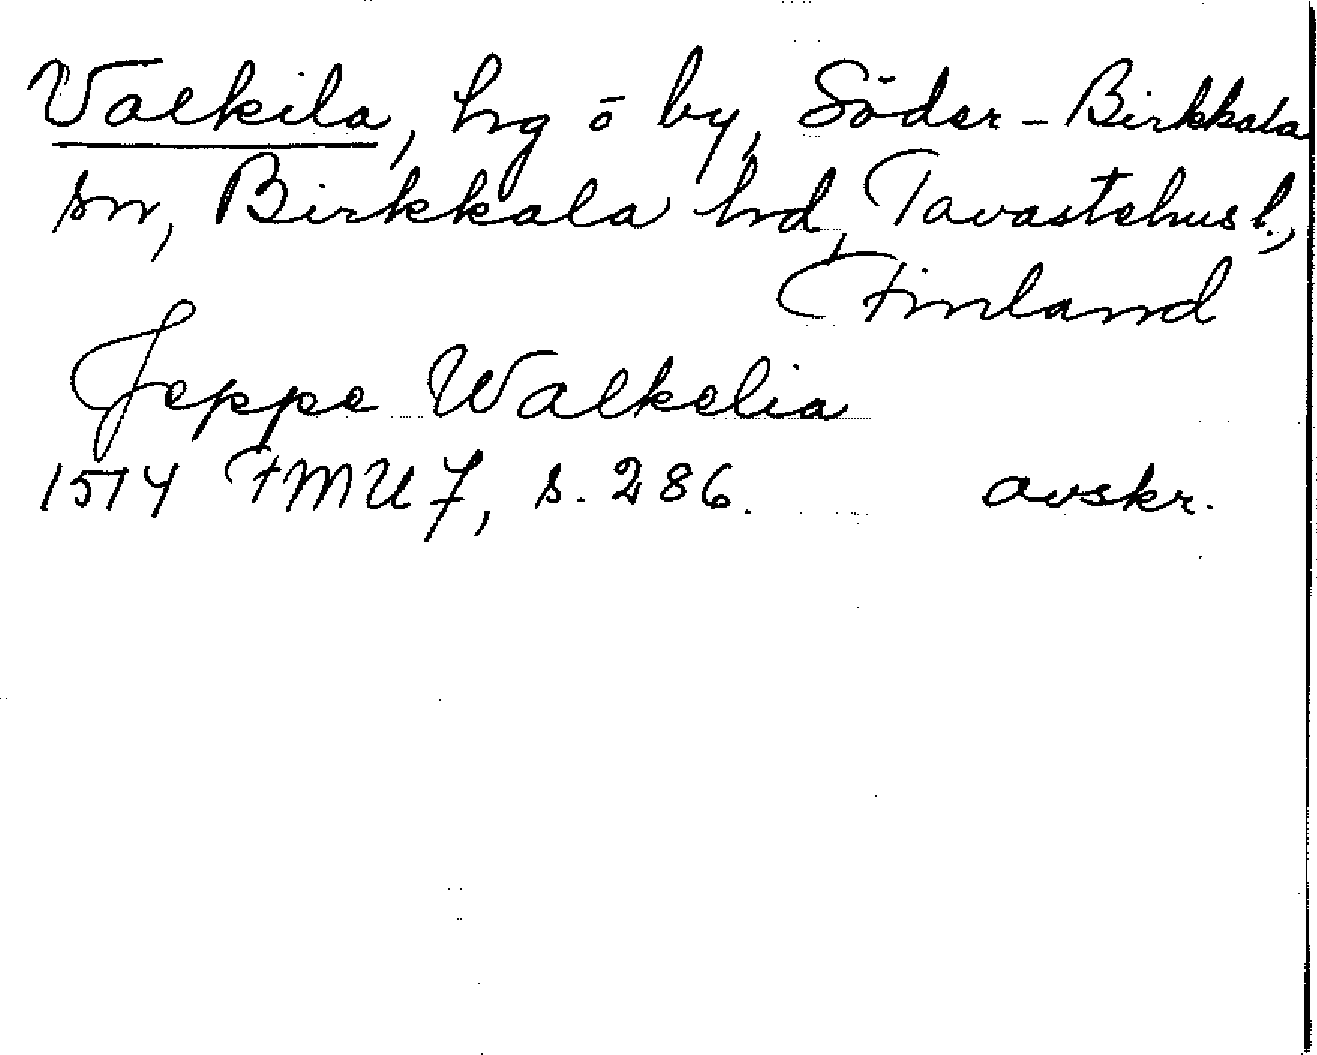 Valkila, hg ō by, Söder-Birkkala
sn, Birkkala hd, Tavastehus l.,
Finland
Jeppe Walkelia
1514 FMU 7, s. 286. avskr.